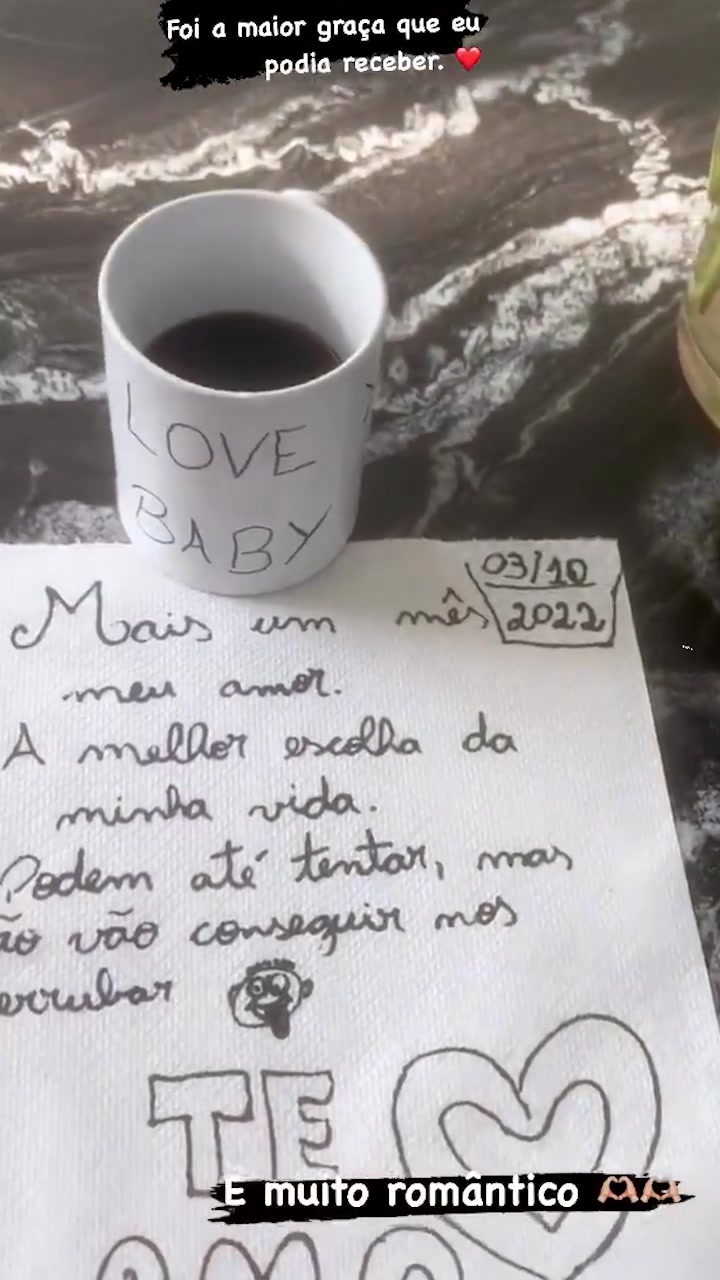 Foi a maior graça que eu
podia receber. ❤️
LOVE
BABY
03/10
2022
Mais um mês
meu amor.
A melhor escolha da
minha vida.
Podem até tentar, mas
ão vão conseguir nos
errubar
TE
E muito romântico 🫶🏻🫶🏻
AMO